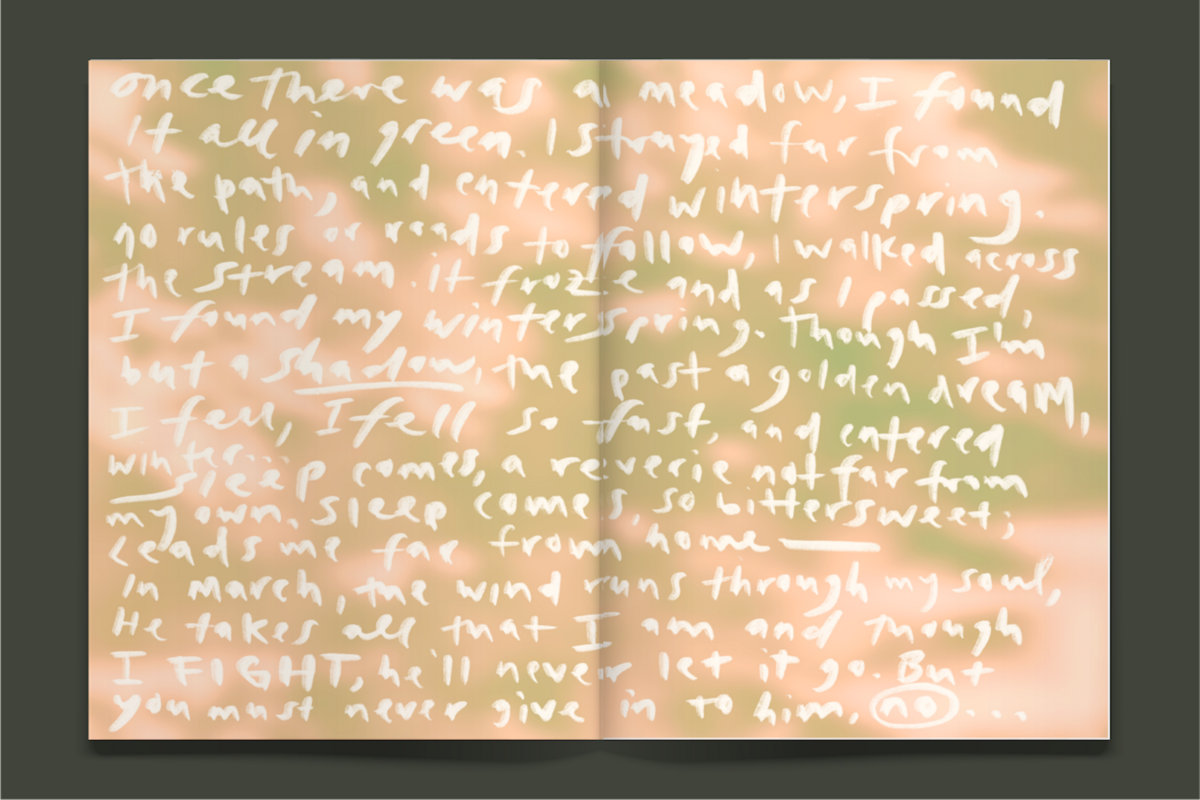 once there was a meadow, I found
It all in green. I strayed far from
the path, and entered winterspring.
no rules or roads to follow, I walked across
the stream. it froze and as I passed,
I found my winterspring. Though I'm
but a shadow, the past a golden dream,
I fell, I fell so fast, and entered
winter...
sleep comes, a reverie not far from
my own. sleep comes, so bittersweet;
leads me far from home —
In march, the wind runs through my soul,
He takes all that I am and though
I FIGHT, he'll never let it go. But
you must never give in to him, no...